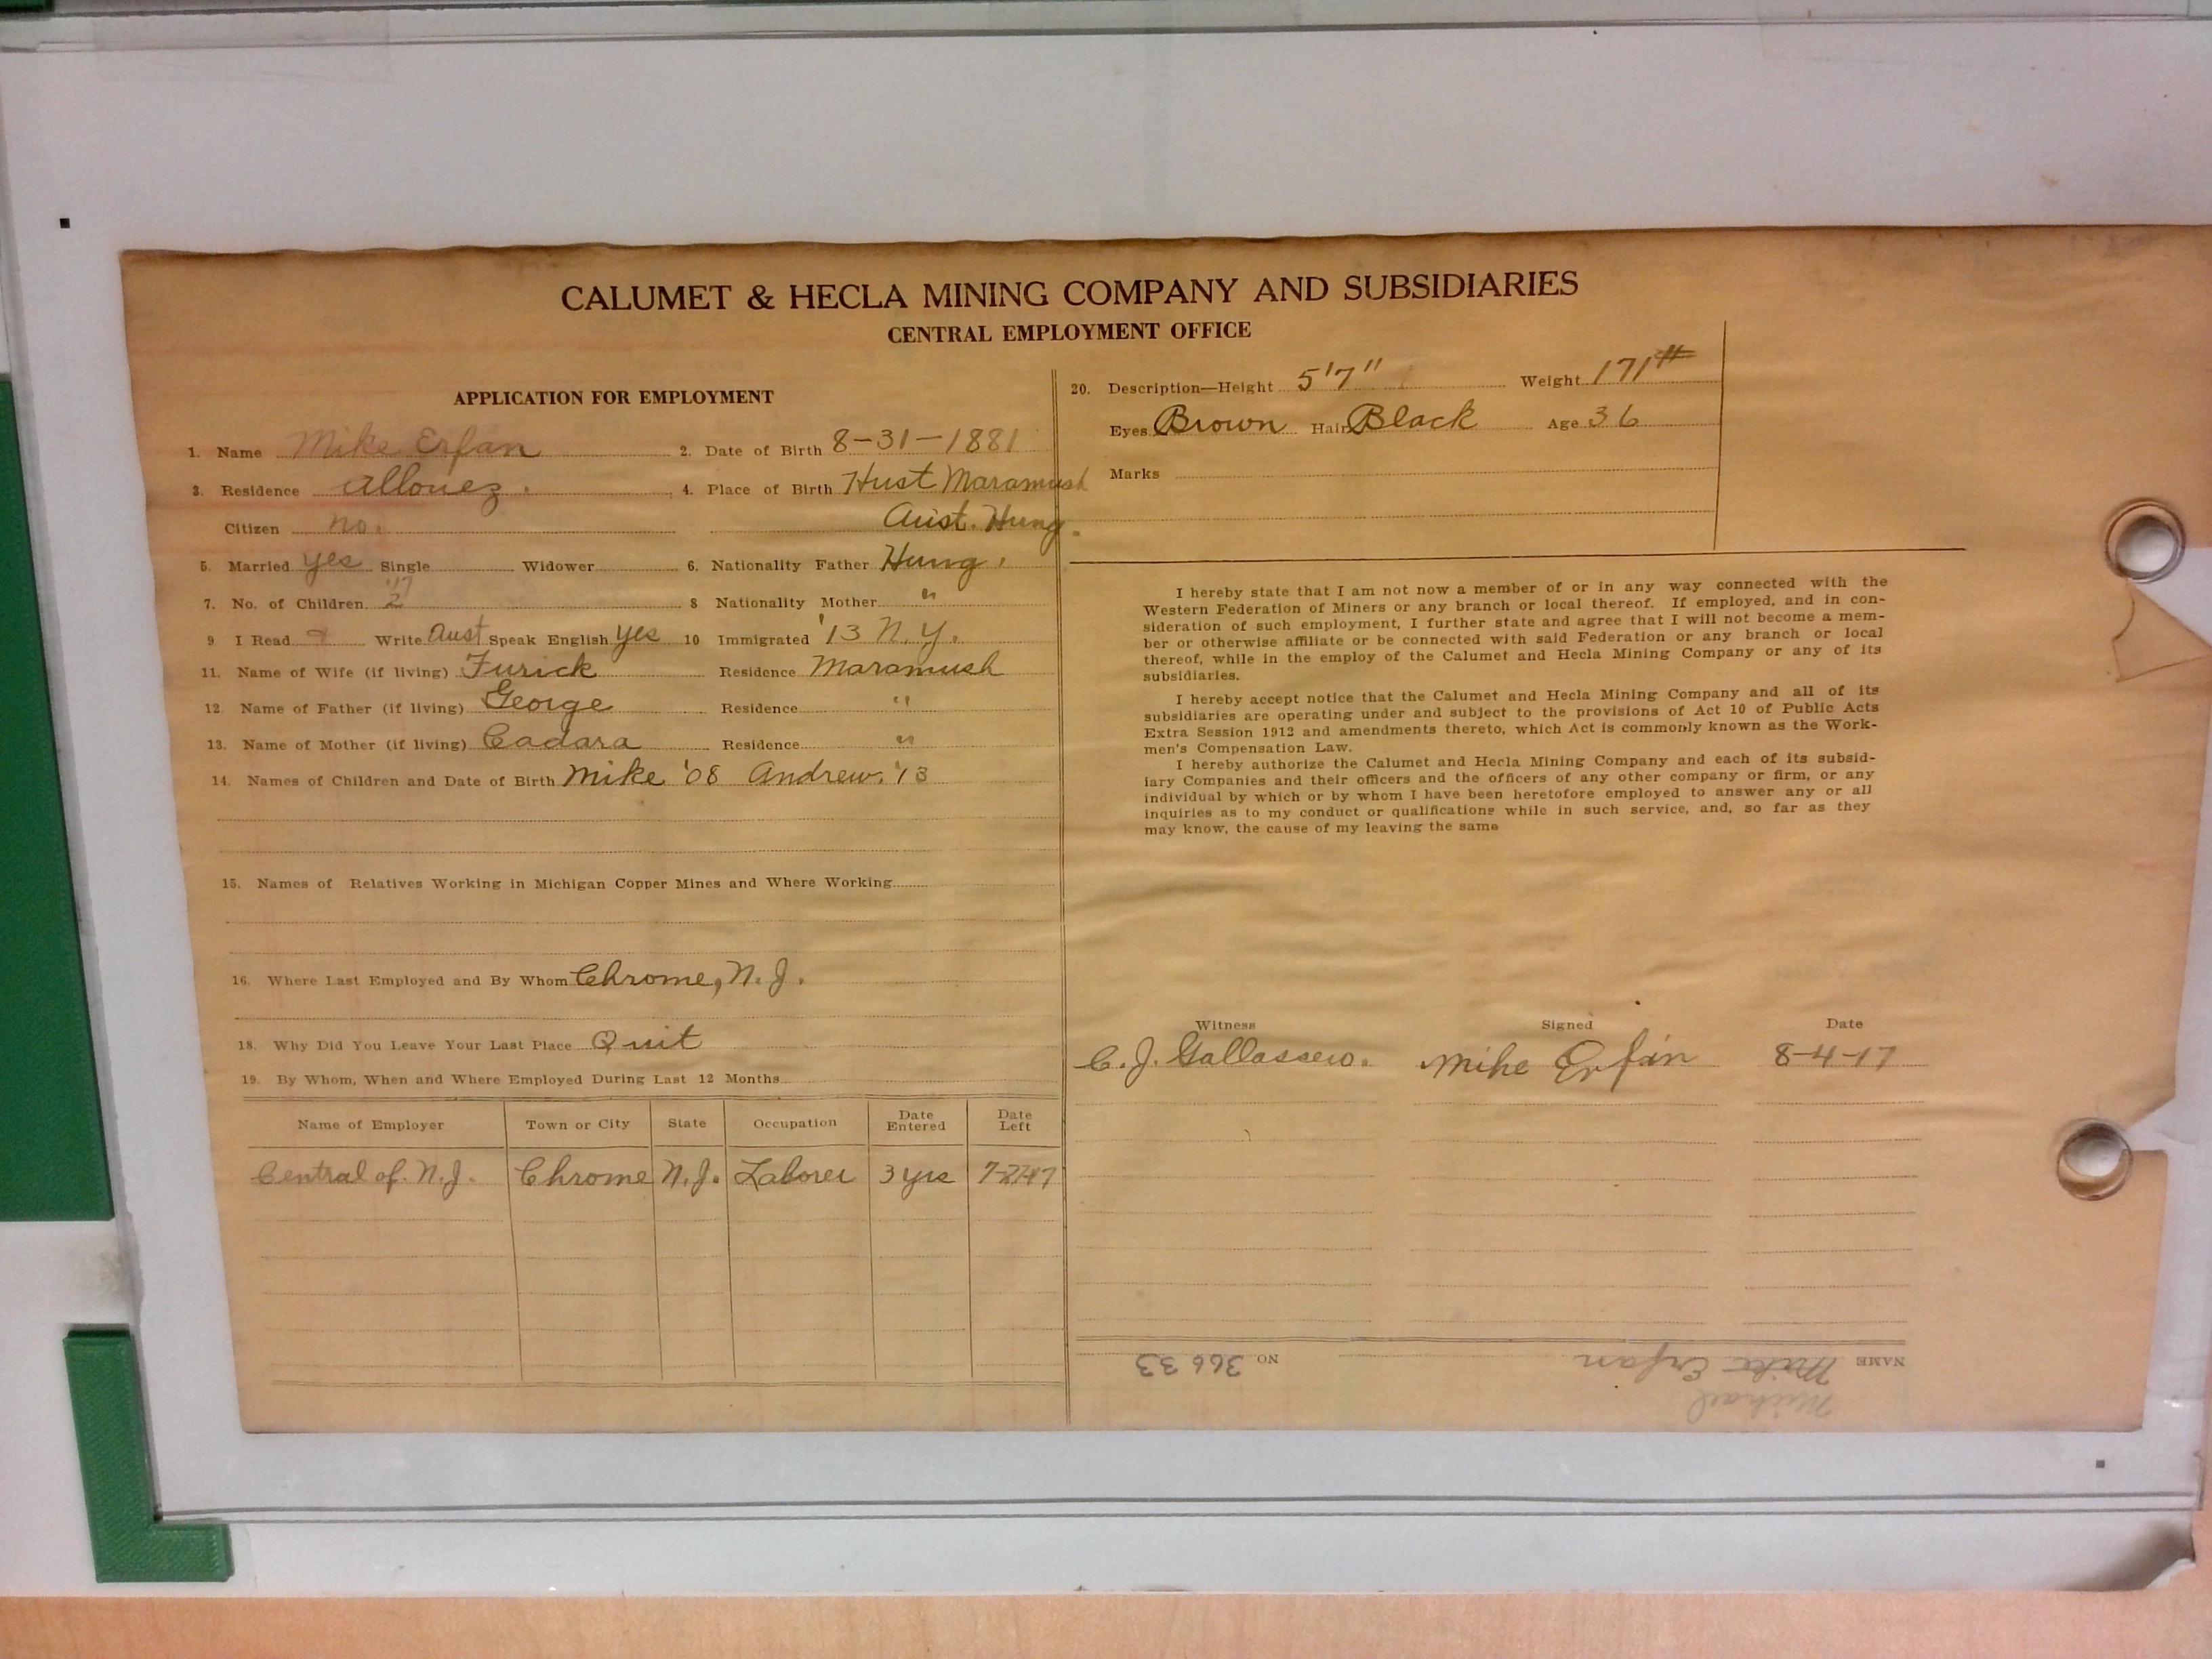 CALUMET & HECLA MINING COMPANY AND SUBSIDIARIES
CENTRAL EMPLOYMENT OFFICE
APPLICATION FOR EMPLOYMENT
1. Name Mike Erfan 2. Date of Birth 8-31-1881
3. Residence Allouez. 4. Place of Birth Hust Maramush
Citizen no. Aust. Hung.
5. Married yes Single Widower 6. Nationality Father Hung.
'17
7. No. of Children 2 8 Nationality Mother "
9 I Read & Write Aust Speak English yes 10 Immigrated '13 N.Y.
11. Name of Wife (if living) Furick Residence Maramush
12. Name of Father (if living) George Residence "
13. Name of Mother (if living) Cadara Residence "
14. Names of Children and Date of Birth Mike '08 Andrew. '13
15. Names of Relatives Working in Michigan Copper Mines and Where Working
16. Where Last Employed and By Whom Chrome, N.J.
18. Why Did You Leave Your Last Place Quit
19. By Whom, When and Where Employed During Last 12 Months
Name of Employer Town or City State Occupation Date Entered Date Left
Central of N.J. Chrome N.J. Laborer 3 yrs 7-27-17
20. Description—Height 5'7" Weight 171#
Eyes Brown Hair Black Age 36
Marks
I hereby state that I am not now a member of or in any way connected with the
Western Federation of Miners or any branch or local thereof. If employed, and in con-
sideration of such employment, I further state and agree that I will not become a mem-
ber or otherwise affiliate or be connected with said Federation or any branch or local
thereof, while in the employ of the Calumet and Hecla Mining Company or any of its
subsidiaries.
I hereby accept notice that the Calumet and Hecla Mining Company and all of its
subsidiaries are operating under and subject to the provisions of Act 10 of Public Acts
Extra Session 1912 and amendments thereto, which Act is commonly known as the Work-
men's Compensation Law.
I hereby authorize the Calumet and Hecla Mining Company and each of its subsid-
iary Companies and their officers and the officers of any other company or firm, or any
individual by which or by whom I have been heretofore employed to answer any or all
inquiries as to my conduct or qualifications while in such service, and, so far as they
may know, the cause of my leaving the same
Witness Signed Date
C. J. Gallassero. Mike Erfan 8-4-17
Michael
NAME Mike Erfan NO. 36633